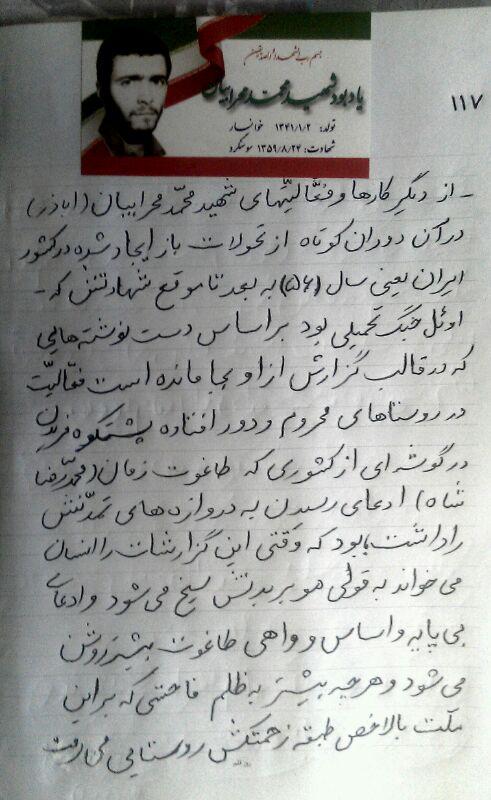 بسم رب الشهدا و الصدیقین
یادبود شهید محمد محرابیان
تولد: ۱۳۴۱/۱/۲ خوانسار
شهادت: ۱۳۵۹/۸/۲۴ سوسنگرد
۱۱۷
- از دیگر کارها و فعّالیّتهای شهید محمّد محرابیان (اباذر)
در آن دوران کوتاه از تحولات باز ایجاد شده در کشور
ایران یعنی سال (۵۶) به بعد تا موقع شهادتش که -
اوئل جنگ تحمیلی بود بر اساس دست نوشته هایی
که در قالب گزارش از او بجا مانده است فعّالیّت
در روستاهای محروم و دور افتاده پشتکوه فریدن
در گوشه ای از کشوری که طاغوت زمان (محمّد رضا
شاه) ادعای رسیدن به دروازه های تمدّنش
را داشت، بود که وقتی این گزارشات را انسان
می خواند به قولی مو بر بدنش سیخ می شود و ادعای
بی پایه و اساس و واهی طاغوت بیشتر روشن
می شود و هر چه بیشتر به ظلم فاحشی که بر این
ملّت بالاخص طبقه زحمتکش روستایی می رفت